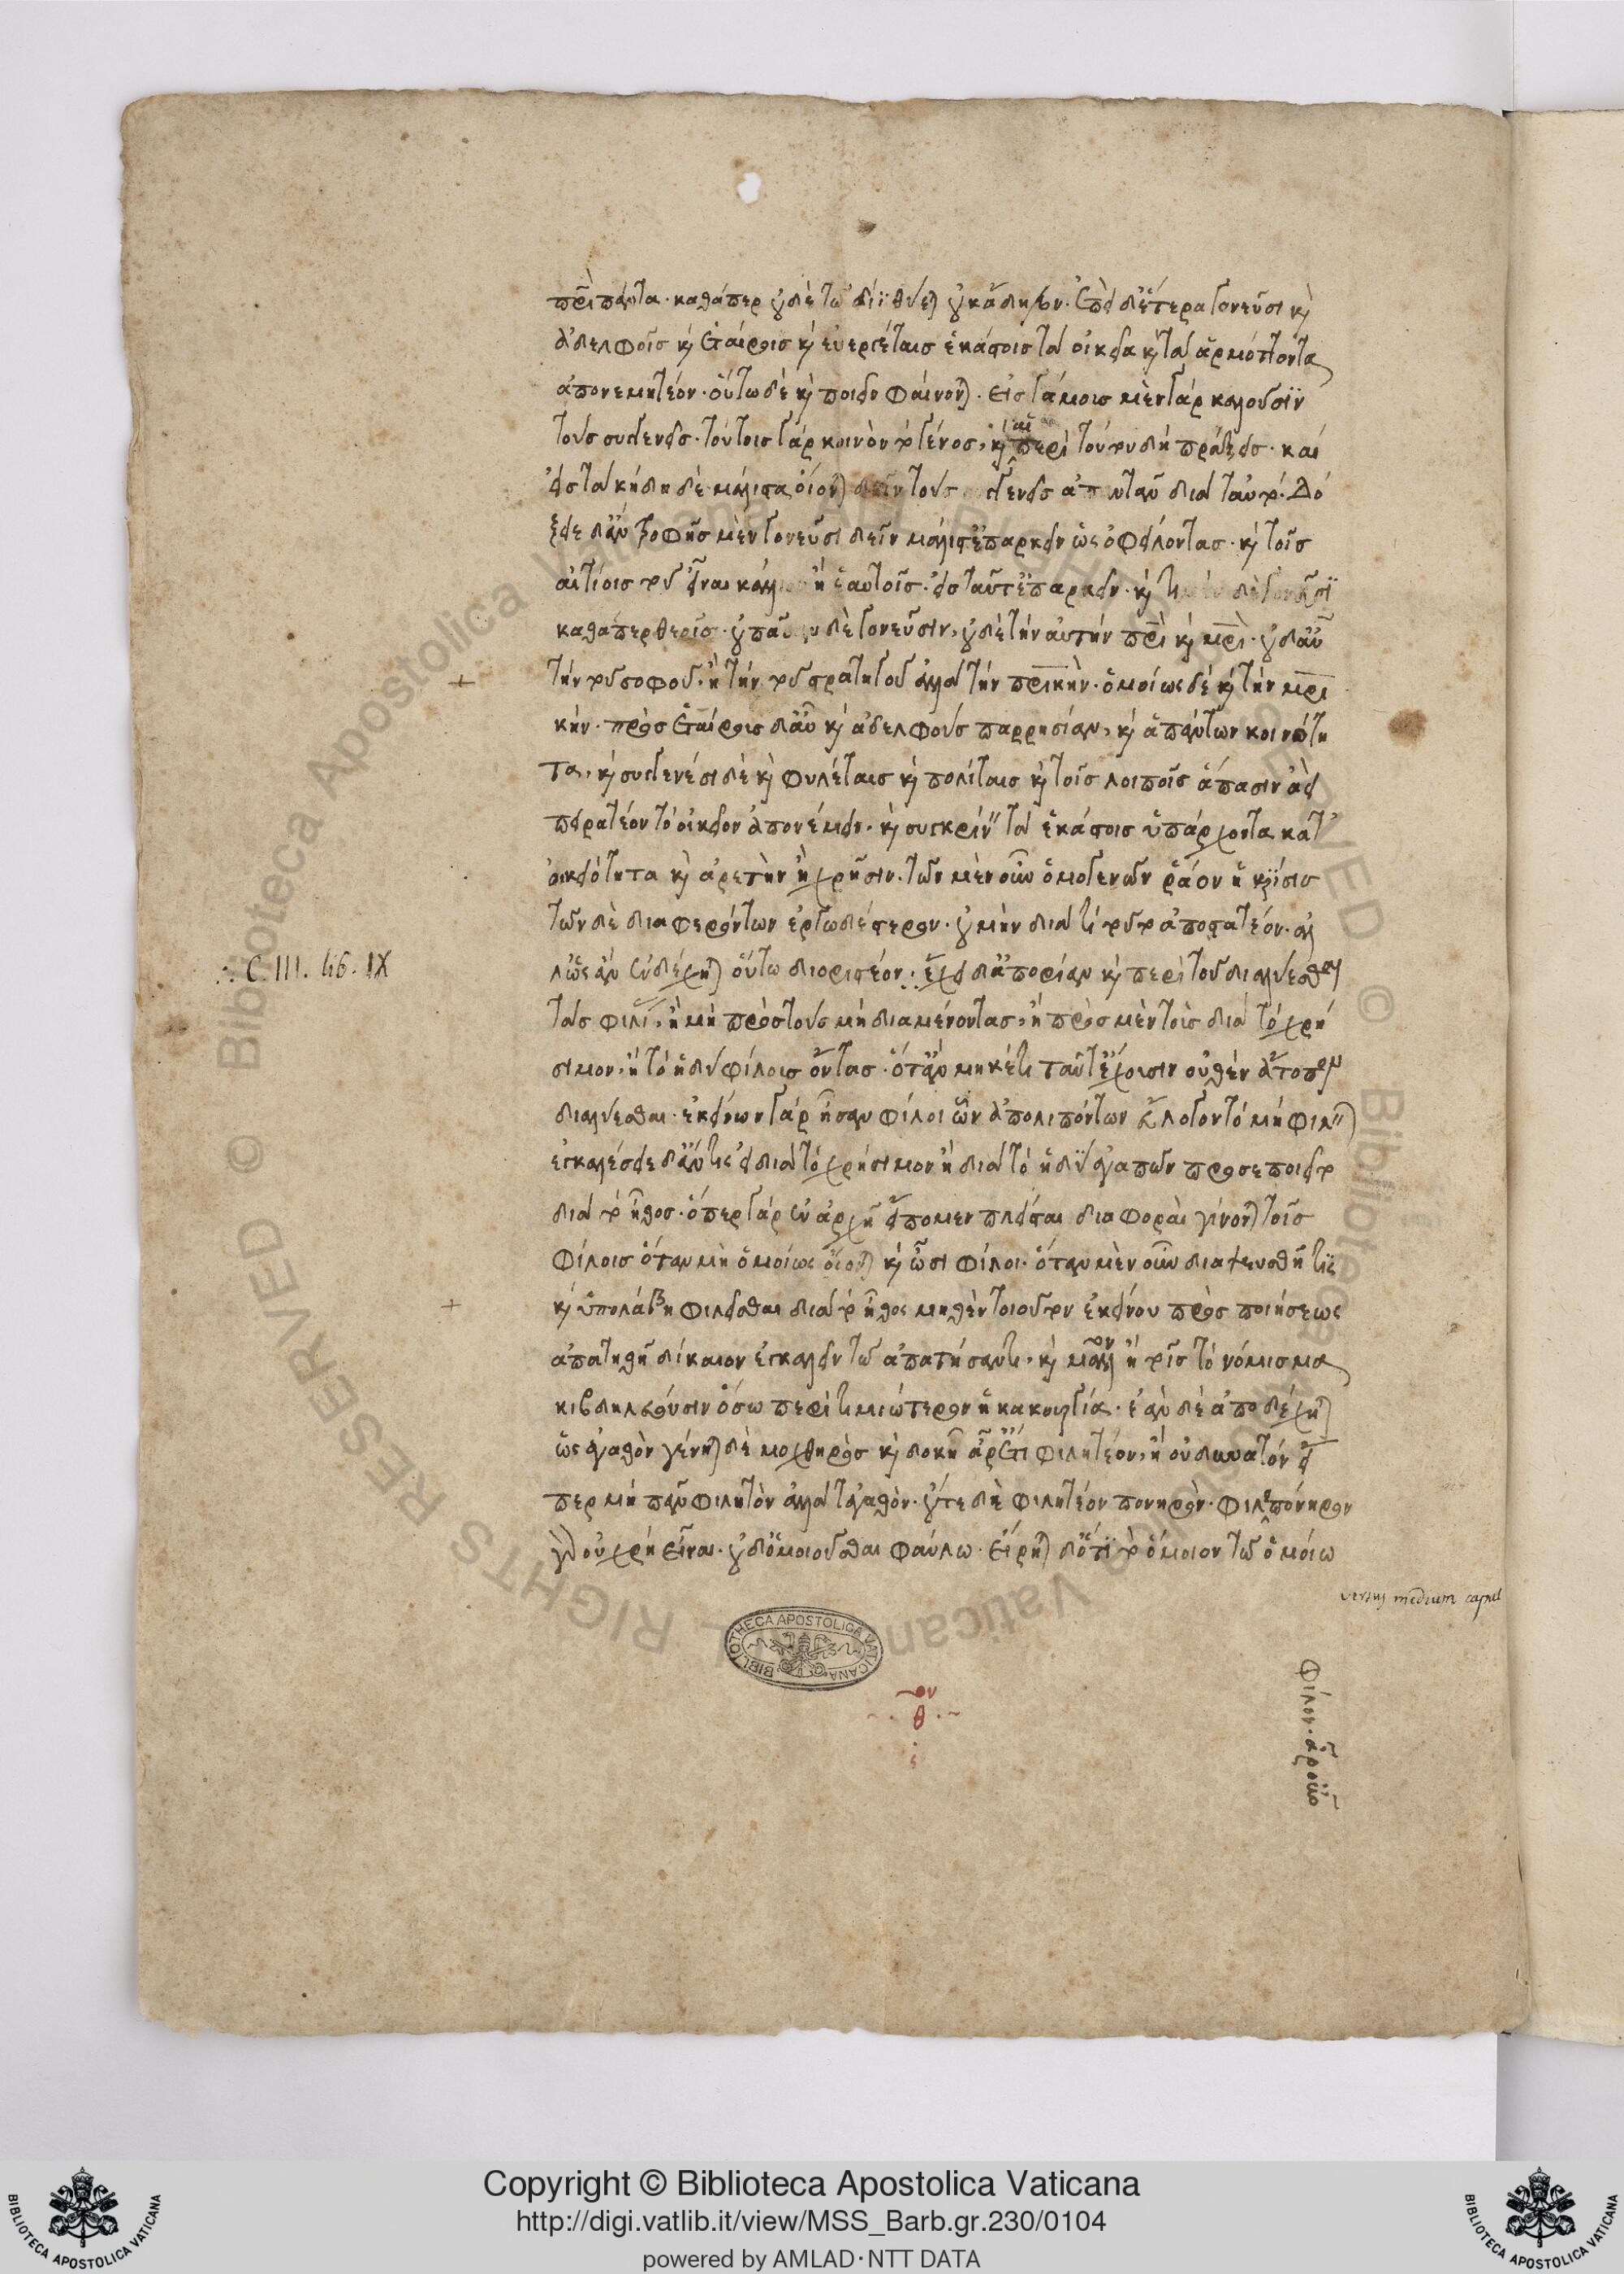 πρὶ πάντα. καθάπερ οὐδὲ τῶ διῒ θύεται οὐκ ἄδηλον. ἐπεὶ δ' ἕτερα γονεῦσι καὶ
ἀδελφοῖς καὶ ἑταίροις καὶ εὐεργέταις ἑκάστοις τὰ οἰκεῖα καὶ τὰ ἁρμόττοντα
ἀπονεμητέον. οὕτω δὲ καὶ ποιεῖν φαίνονται. εἰς γάμους μὲν γὰρ καλοῦσϊν
τοὺς συγγενεῖς. τούτοις γὰρ κοινὸν τὸ γένος, καὶ αἱ περὶ τοῦτο δὴ πράξεις. καὶ
εἰς τὰ κήδη δὲ μάλιστα οἴονται δεῖν τοὺς συγγενεῖς ἀπαντᾶν διὰ ταὐτό. Δό
ξειε δ' ἂν τροφῆς μὲν γονεῦσι δεῖν μάλιστ' ἐπαρκεῖν ὡς ὀφείλοντας. καὶ τοῖς
αἰτίοις τοῦ εἶναι κάλλιον ἢ ἑαυτοῖς εἰς ταῦτ' ἐπαρκεῖν. καὶ τιμὴν δὲ γονεῦσϊ
καθάπερ θεοῖς. οὐ πᾶσαν δὲ γονεῦσιν, οὐδὲ τὴν αὐτὴν πρὶ καὶ μρὶ. οὐδ' αὖ
τὴν τοῦ σοφοῦ, ἢ τὴν τοῦ στρατηγοῦ ἀλλὰ τὴν πρικὴν. ὁμοίως δὲ καὶ τὴν μρι
κήν. πρὸς ἑταίρους δ' αὖ καὶ ἀδελφοὺς παρρησίαν, καὶ ἁπάντων κοινότη
τα, καὶ συγγενέσι δὲ καὶ φυλέταις καὶ πολίταις καὶ τοῖς λοιποῖς ἅπασιν ἀεὶ
πειρατέον τὸ οἰκεῖον ἀπονέμειν. καὶ συγκρίνειν τὰ ἑκάστοις ὑπάρχοντα κατ'
οἰκειότητα καὶ ἀρετὴν ἢ χρῆσιν. τῶν μὲν οὖν ὁμογενῶν ῥάον ἡ κρίσις
τῶν δὲ διαφερόντων ἐργωδέστερον. οὐ μὴν διά γε τοῦτο ἀποστατέον. ἀλ
λ' ὡς ἂν ἐνδέχηται οὕτω διοριστέον. ἔχει δ' ἀπορίαν καὶ περὶ τοῦ διαλύεσθαι
∴ C III. lib. IX
τὰς φιλίας, ἢ μὴ πρὸς τοὺς μὴ διαμένοντας, ἢ πρὸς μὲν τοὺς διὰ τὸ χρή
σιμον, ἢ τὸ ἡδὺ φίλους ὄντας. ὅταν μηκέτι ταῦτ' ἔχουσιν οὐθὲν ἄτοπον
διαλύεσθαι. ἐκείνων γὰρ ἦσαν φίλοι ὧν ἀπολιπόντων εὔλογον τὸ μὴ φιλεῖν
ἐγκαλέσειε δ' ἄν τις εἰ διὰ τὸ χρήσιμον ἢ διὰ τὸ ἡδὺ ἀγαπῶν προσεποιεῖτο
διὰ τὸ ἦθος. ὅπερ γὰρ ἐν ἀρχῆ εἴπομεν πλεῖσται διαφοραὶ γίνονται τοῖς
φίλοις ὅταν μὴ ὁμοίως οἴονται καὶ ὦσι φίλοι. ὅταν μὲν οὖν διαψευσθῆ τις
καὶ ὑπολάβη φιλεῖσθαι διὰ τὸ ἦθος μηθὲν τοιοῦτον ἐκείνου πρὸς ποιήσεως
ἀπατηθῆ δίκαιον ἐγκαλεῖν τῶ ἀπατήσαντι. καὶ μᾶλλον ἢ τοῖς τὸ νόμισμα
κιβδηλεύουσιν ὅσω περὶ τιμιώτερον ἡ κακουργία. ἐὰν δὲ ἀποδέχηται
ὡς ἀγαθὸν γένηται δὲ μοχθηρὸς καὶ δοκῆ ἆρ' ἔτι φιλητέον, ἢ οὐ δυνατόν εἴ
περ μὴ πᾶν φιλητὸν ἀλλὰ τἀγαθὸν. οὔτε δὴ φιλητέον πονηρὸν. φιλοπόνηρον
γὰρ οὐ χρὴ εἶναι. οὐδ' ὁμοιοῦσθαι φαύλω. εἴρηται δ' ὅτϊ τὸ ὅμοιον τῶ ὁμοίω
versus medium capit
BIBLIOTHECA APOSTOLICA VATICANA
θ
Copyright © Biblioteca Apostolica Vaticana
http://digi.vatlib.it/view/MSS_Barb.gr.230/0104
powered by AMLAD·NTT DATA
BIBLIOTECA APOSTOLICA VATICANA
BIBLIOTECA APOSTOLICA VATICANA